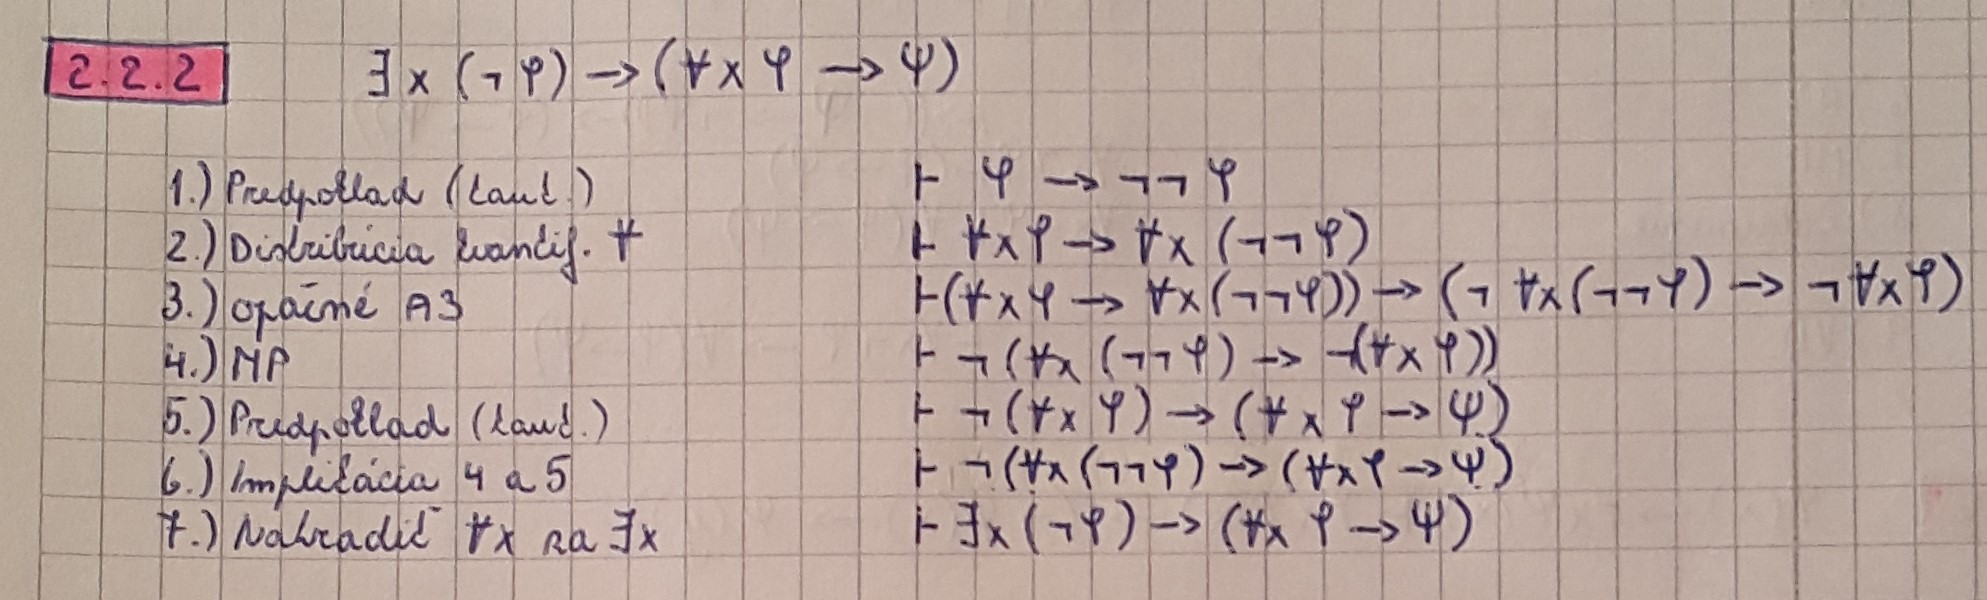 2.2.2 ∃x (¬φ) → (∀x φ → ψ)
1.) Predpoklad (taut.) ⊢ φ → ¬¬φ
2.) Distribúcia kvantif. ∀ ⊢ ∀xφ → ∀x (¬¬φ)
3.) opačné A3 ⊢ (∀xφ → ∀x(¬¬φ)) → (¬ ∀x(¬¬φ) → ¬∀xφ)
4.) MP ⊢ ¬(∀x (¬¬φ) → ¬(∀x φ))
5.) Predpoklad (taut.) ⊢ ¬(∀x φ) → (∀x φ → ψ)
6.) Implikácia 4 a 5 ⊢ ¬(∀x(¬¬φ) → (∀xφ → ψ)
7.) Nahradiť ∀x za ∃x ⊢ ∃x(¬φ) → (∀x φ → ψ)